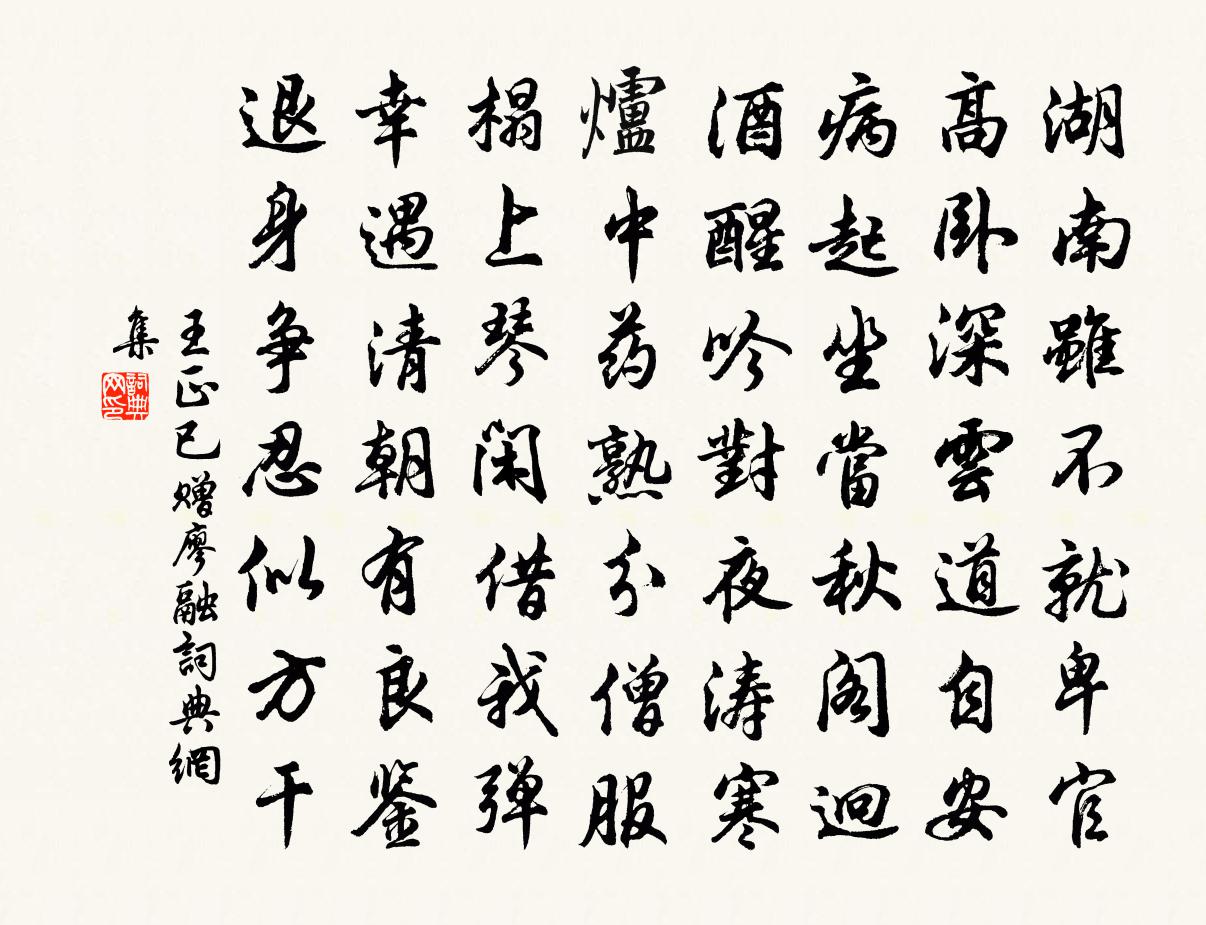 湖南雖不就卑官
高卧深雲道自安
病起坐當秋閣迥
酒醒吟對夜涛寒
爐中药熟分僧服
榻上琴閑借我彈
幸遇清朝有良鉴
退身争忍似方干
王正已赠廖融詞典網
集
詞典网印